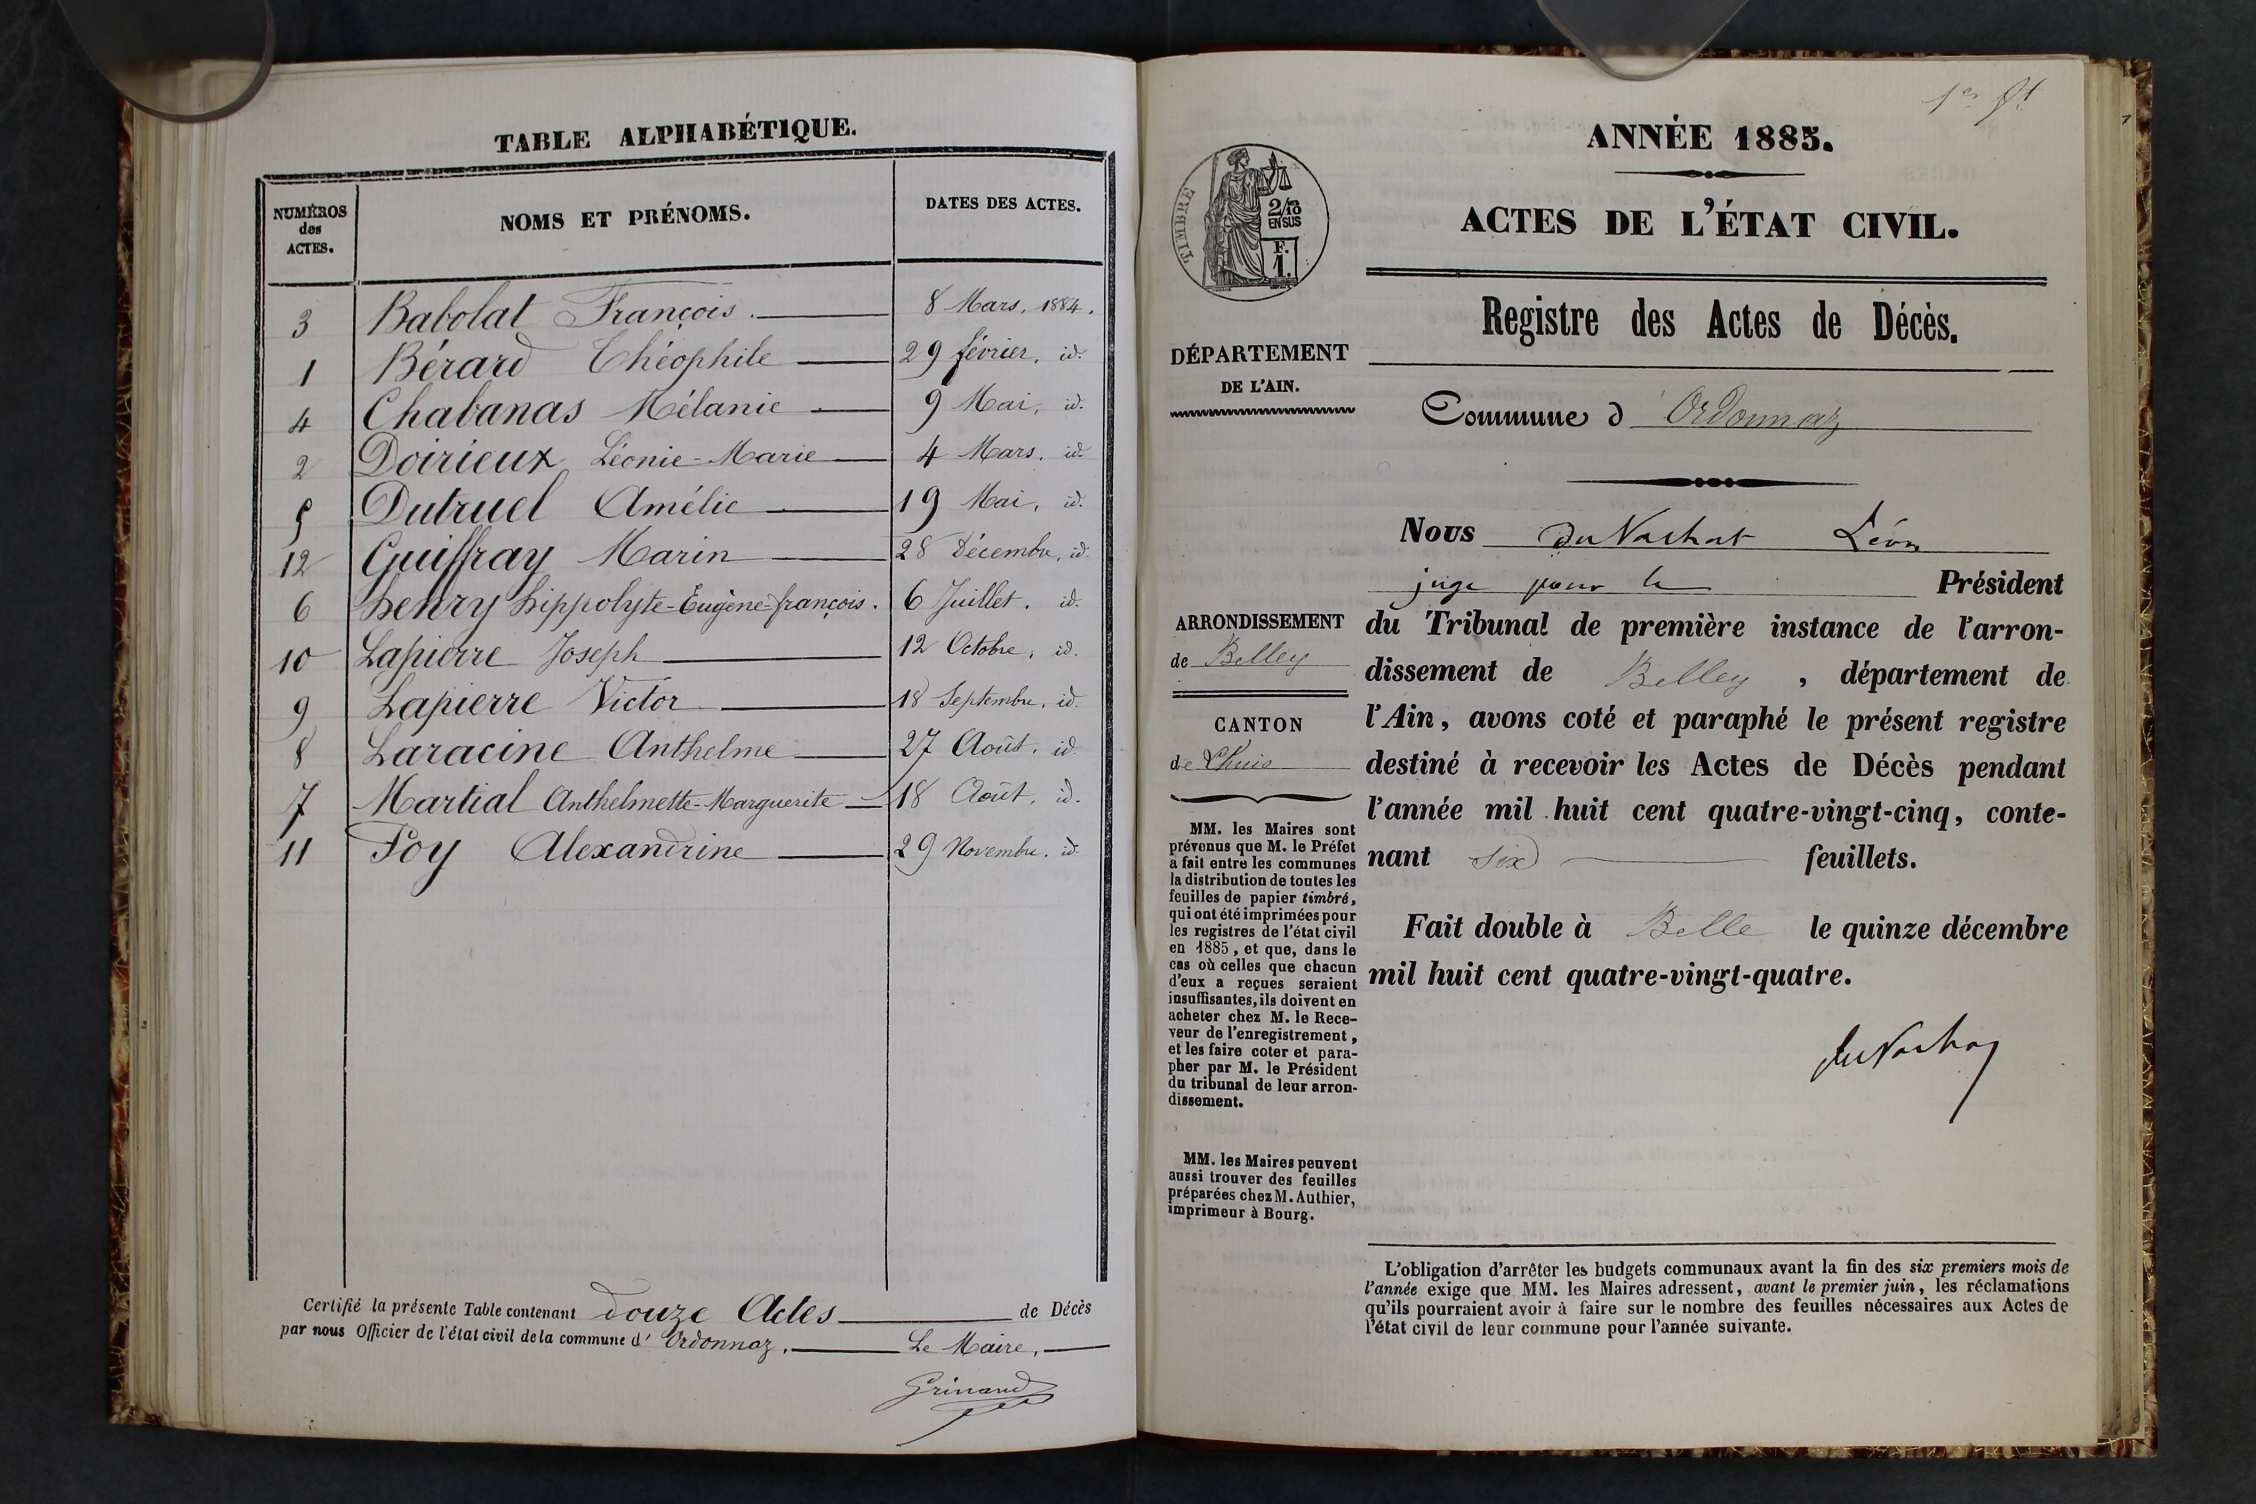 TABLE ALPHABÉTIQUE.
NUMÉROS des ACTES.
NOMS ET PRÉNOMS.
DATES DES ACTES.
3 Babolat François. 8 Mars. 1884.
1 Bérard Théophile 29 février, id.
4 Chabanas Mélanie 9 Mai, id.
2 Doirieux Léonie-Marie 4 Mars. id.
5 Dutruel Amélie 19 Mai, id.
12 Guiffray Marin 28 Décembre, id.
6 henry hippolyte-Eugène-françois. 6 Juillet. id.
10 Lapierre Joseph 12 Octobre, id.
9 Lapierre Victor 18 Septembre, id.
8 Laracine Anthelme 27 Août. id.
7 Martial Anthelmette-Marguerite 18 Août, id.
11 Foy Alexandrine 29 Novembre. id.
Certifié la présente Table contenant douze Actes de Décès
par nous Officier de l'état civil de la commune d' Ordonnaz. Le Maire,
Grinand
1er
ANNÉE 1885.
ACTES DE L'ÉTAT CIVIL.
TIMBRE
2/10
EN SUS
F.
1.
Registre des Actes de Décès.
DÉPARTEMENT
DE L'AIN.
Commune d Ordonnaz
Nous du Vachat Léon
juge pour le Président
du Tribunal de première instance de l'arron-
dissement de Belley, département de
l'Ain, avons coté et paraphé le présent registre
destiné à recevoir les Actes de Décès pendant
l'année mil huit cent quatre-vingt-cinq, conte-
nant six feuillets.
Fait double à Belle le quinze décembre
mil huit cent quatre-vingt-quatre.
du Vachat
ARRONDISSEMENT
de Belley
CANTON
de Lhuis
MM. les Maires sont
prévenus que M. le Préfet
a fait entre les communes
la distribution de toutes les
feuilles de papier timbré,
qui ont été imprimées pour
les registres de l'état civil
en 1885, et que, dans le
cas où celles que chacun
d'eux a reçues seraient
insuffisantes, ils doivent en
acheter chez M. le Rece-
veur de l'enregistrement,
et les faire coter et para-
pher par M. le Président
du tribunal de leur arron-
dissement.
MM. les Maires peuvent
aussi trouver des feuilles
préparées chez M. Authier,
imprimeur à Bourg.
L'obligation d'arrêter les budgets communaux avant la fin des six premiers mois de
l'année exige que MM. les Maires adressent, avant le premier juin, les réclamations
qu'ils pourraient avoir à faire sur le nombre des feuilles nécessaires aux Actes de
l'état civil de leur commune pour l'année suivante.